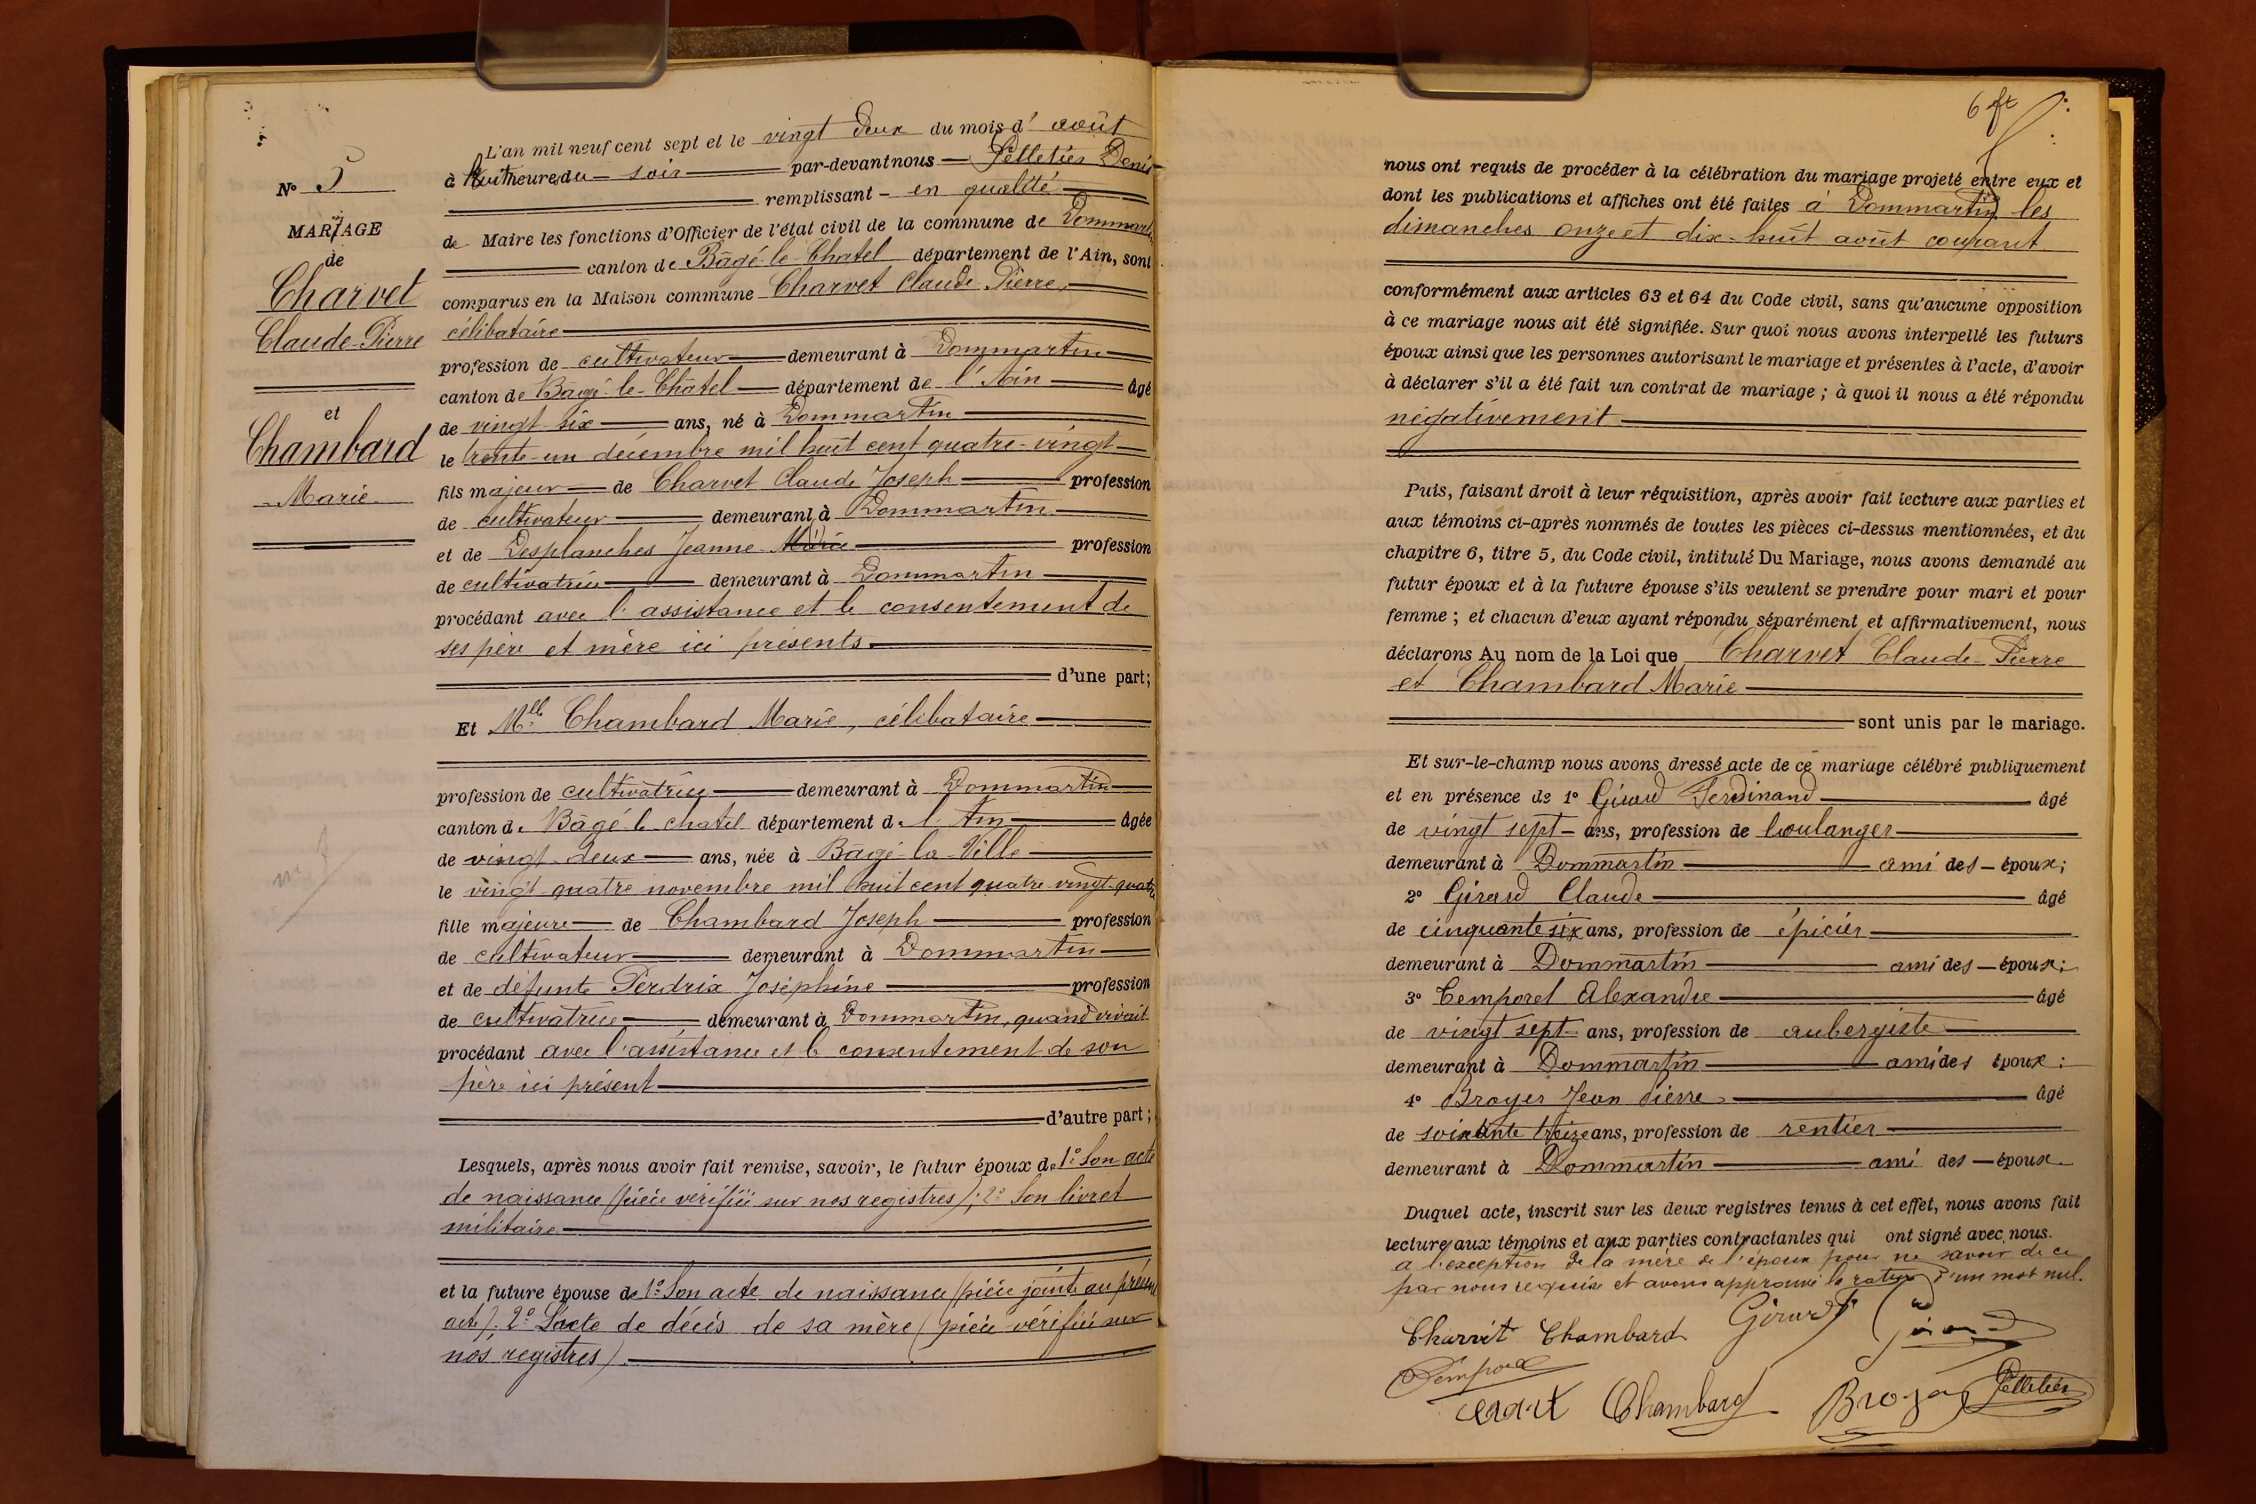 N° 5
MARIAGE
de
Charvet
Claude-Pierre
et
Chambard
Marie
L'an mil neuf cent sept et le vingt deux du mois d' août
à huit heures du soir par-devant nous Pelletier Denis
remplissant en qualité
de Maire les fonctions d'Officier de l'état civil de la commune de Dommartin
canton de Bâgé-le-Chatel département de l'Ain, sont
comparus en la Maison commune Charvet Claude Pierre,
célibataire
profession de cultivateur demeurant à Dommartin
canton de Bâgé-le-Châtel département de l'Ain âgé
de vingt six ans, né à Dommartin
le trente-un décembre mil huit cent quatre-vingt
fils majeur de Charvet Claude Joseph profession
de cultivateur demeurant à Dommartin
et de Desplanches Jeanne Marie profession
de cultivatrice demeurant à Dommartin
procédant avec l'assistance et le consentement de
ses père et mère ici présents
d'une part;
Et Mlle Chambard Marie, célibataire
profession de cultivatrice demeurant à Dommartin
canton de Bâgé le chatel département de l'Ain âgée
de vingt-deux ans, née à Bagé-la-Ville
le vingt-quatre novembre mil huit cent quatre-vingt-quatre
fille majeure de Chambard Joseph profession
de cultivateur demeurant à Dommartin
et de défunte Perdrix Joséphine profession
de cultivatrice demeurant à Dommartin, quand vivait
procédant avec l'assistance et le consentement de son
père ici présent
d'autre part;
Lesquels, après nous avoir fait remise, savoir, le futur époux de 1° Son acte
de naissance (pièce vérifiée sur nos registres); 2° Son livret
militaire
et la future épouse de 1° Son acte de naissance (pièce jointe au présent
acte); 2° L'acte de décès de sa mère (pièce vérifiée sur
nos registres).
6 ft
nous ont requis de procéder à la célébration du mariage projeté entre eux et
dont les publications et affiches ont été faites à Dommartin les
dimanches onze et dix-huit août courant
conformément aux articles 63 et 64 du Code civil, sans qu'aucune opposition
à ce mariage nous ait été signifiée. Sur quoi nous avons interpellé les futurs
époux ainsi que les personnes autorisant le mariage et présentes à l'acte, d'avoir
à déclarer s'il a été fait un contrat de mariage; à quoi il nous a été répondu
négativement
Puis, faisant droit à leur réquisition, après avoir fait lecture aux parties et
aux témoins ci-après nommés de toutes les pièces ci-dessus mentionnées, et du
chapitre 6, titre 5, du Code civil, intitulé Du Mariage, nous avons demandé au
futur époux et à la future épouse s'ils veulent se prendre pour mari et pour
femme; et chacun d'eux ayant répondu séparément et affirmativement, nous
déclarons Au nom de la Loi que Charvet Claude-Pierre
et Chambard Marie
sont unis par le mariage.
Et sur-le-champ nous avons dressé acte de ce mariage célébré publiquement
et en présence de 1° Girard Ferdinand âgé
de vingt sept ans, profession de boulanger
demeurant à Dommartin ami des époux;
2° Girard Claude âgé
de cinquante six ans, profession de épicier
demeurant à Dommartin ami des époux;
3° Temporel Alexandre âgé
de vingt sept ans, profession de aubergiste
demeurant à Dommartin ami des époux;
4° Broyer Jean Pierre âgé
de soixante treize ans, profession de rentier
demeurant à Dommartin ami des époux.
Duquel acte, inscrit sur les deux registres tenus à cet effet, nous avons fait
lecture aux témoins et aux parties contractantes qui ont signé avec nous.
à l'exception de la mère de l'époux pour ne savoir de ce
par nous requise et avons approuvé la rature d'un mot nul.
Charvet Chambard Girard F Girard
Temporel
Chambard Broyer Pelletier